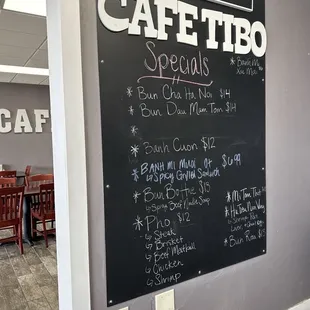 CAFE TIBO
Specials
* Banh Mi
Xiu Mai
* Bun Cha Ha Noi $14
* Bun Dau Mam Tom $14
*
* Banh Cuon $12
* BANH MI Muoi Ot $6.99
↳ Spicy Grilled Sandwich
* Bun Bo Hue $15
↳ Spicy Beef Noodle Soup
* Pho $12
↳ Steak
↳ Brisket
↳ Beef Meatball
↳ Chicken
↳ Shrimp
* Mi Tom Thit
* Hu Tieu Nam Vang
↳ Shrimp
* Bun Rieu $15
CAFE